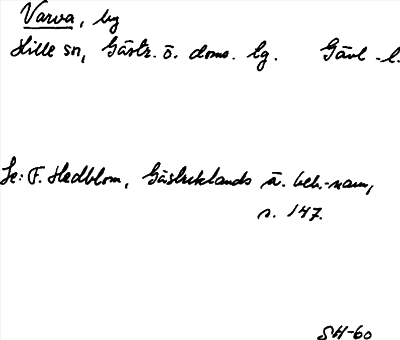 Varva, by
Hille sn, Gästr. ö. doms. tg. Gävl. l.
Se: F. Hedblom, Gästriklands ä. beb.-namn,
s. 147.
SH-60